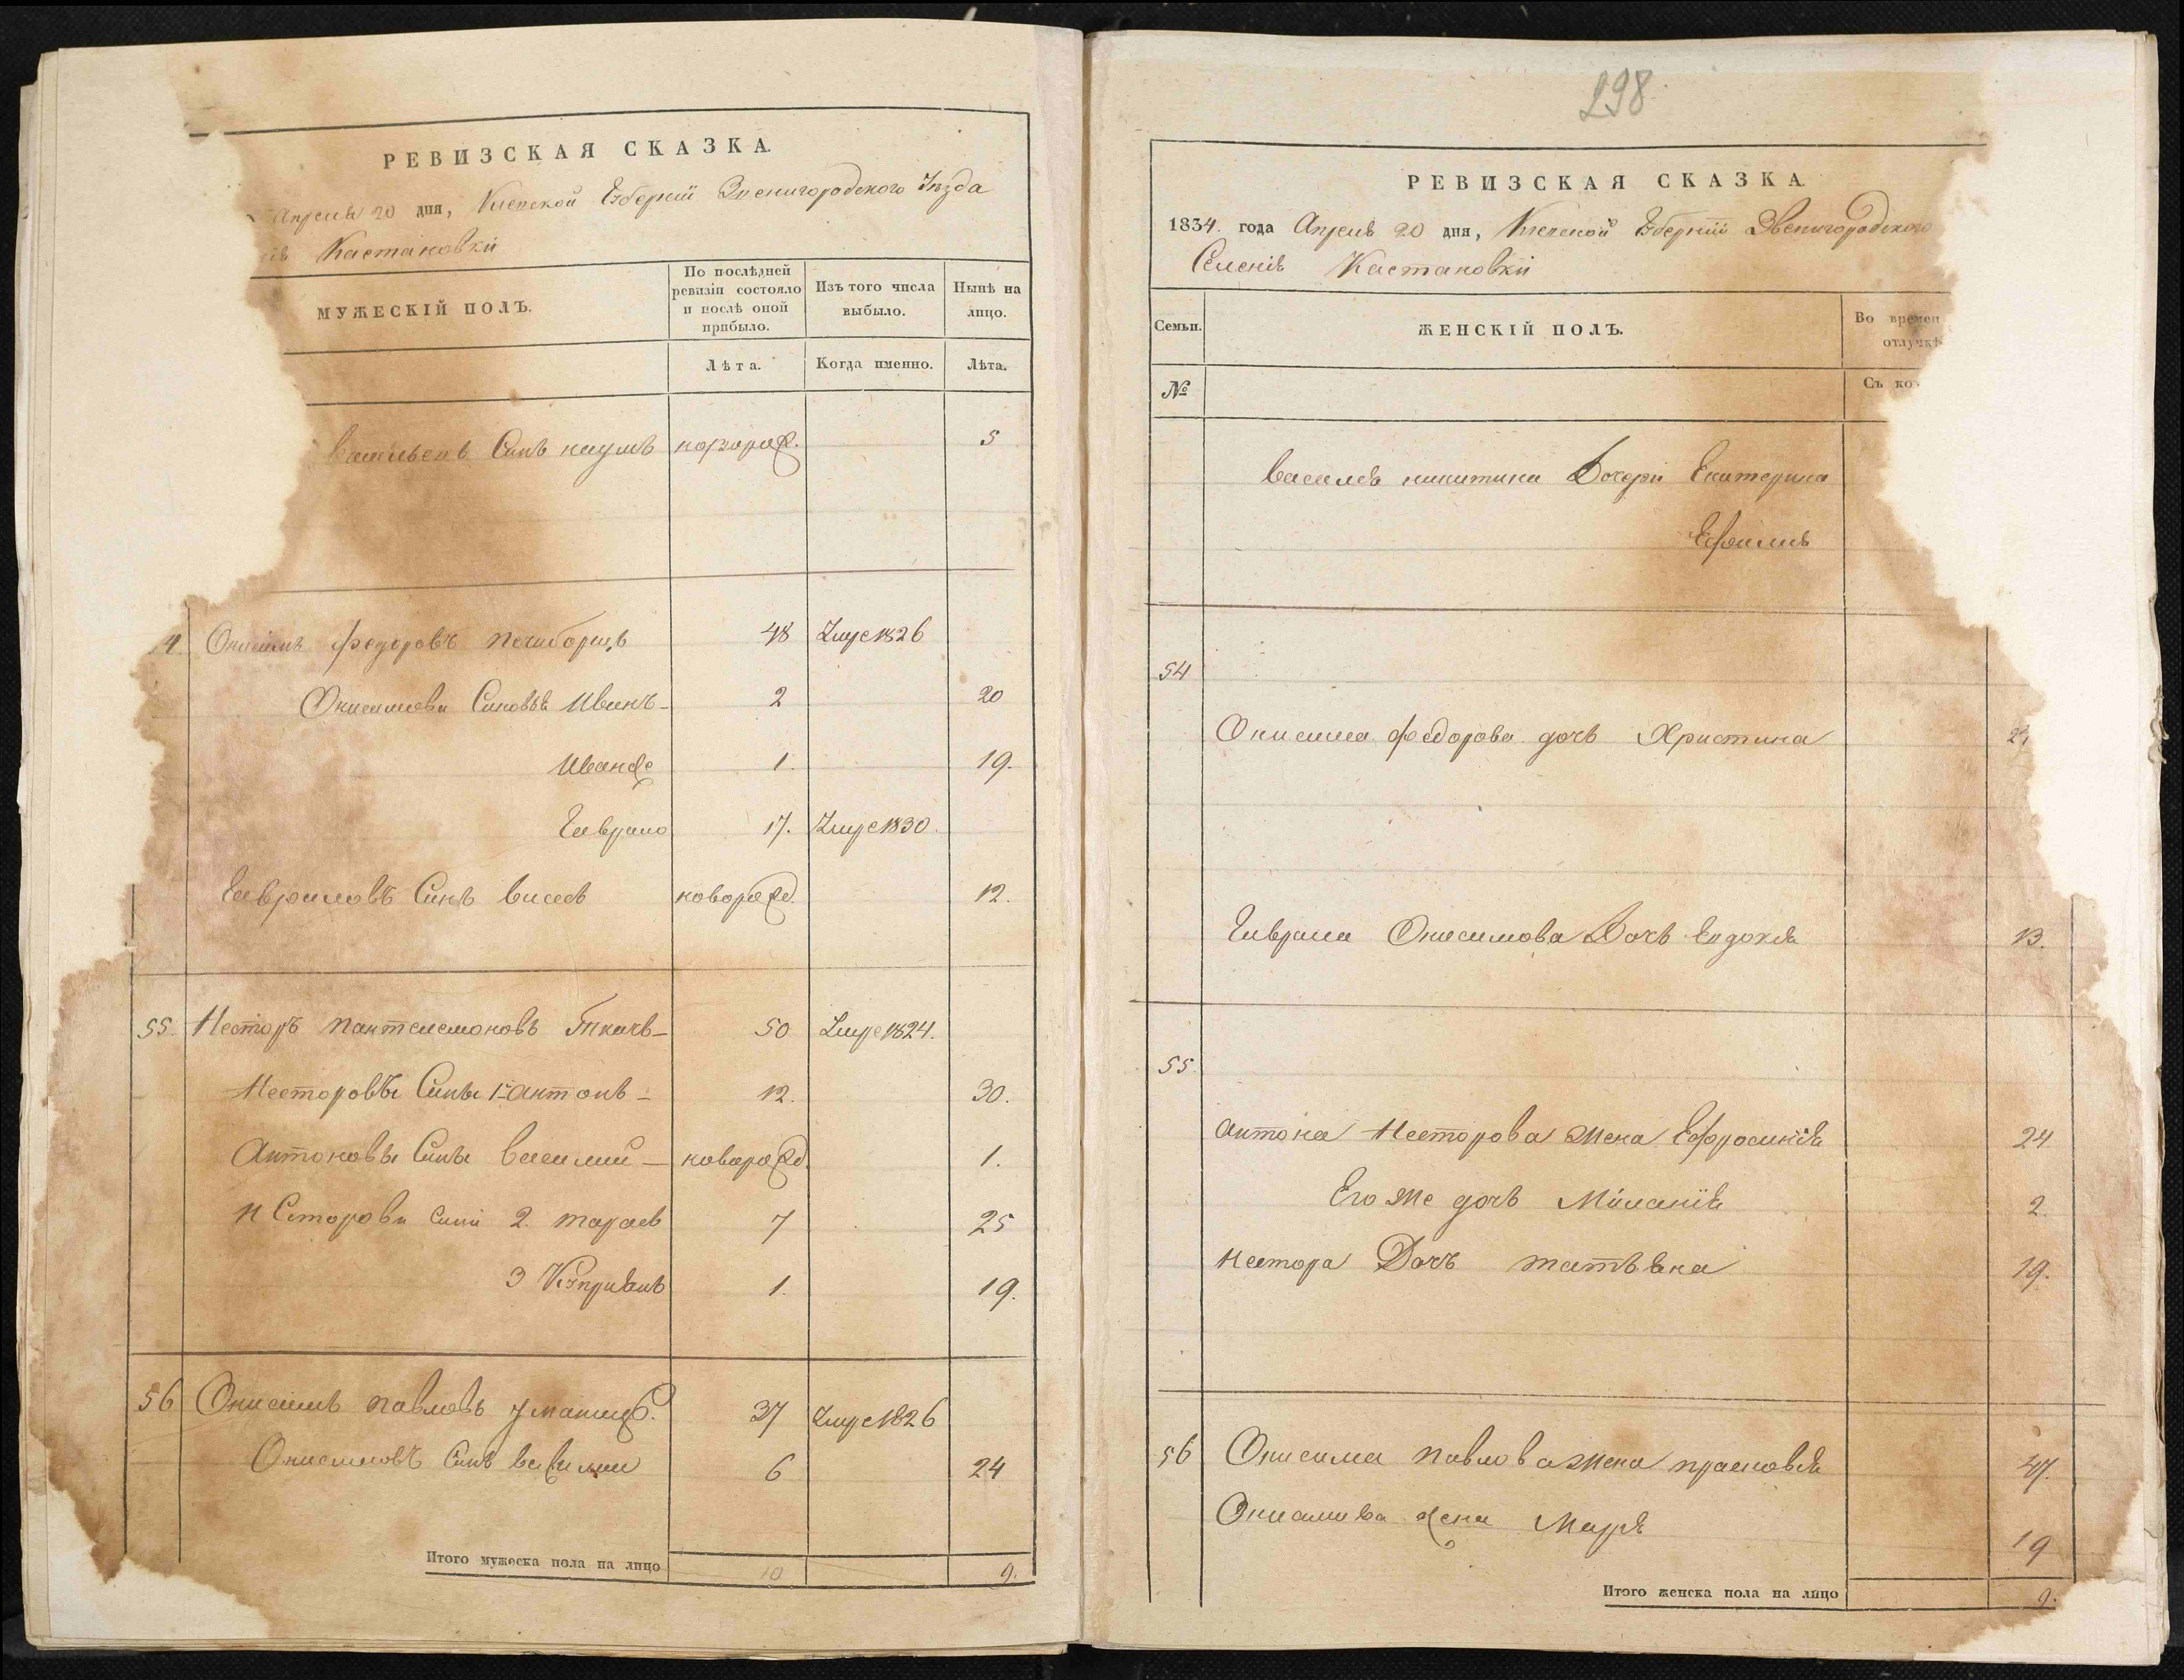 РЕВИЗСКАЯ СКАЗКА.
Апреля 20 дня, Киевской Губернии Звенигородского Уѣзда
Кастановки
МУЖЕСКІЙ ПОЛЪ.
По послѣдней ревизіи состояло и послѣ оной прибыло.
Изъ того числа выбыло.
Нынѣ на лицо.
Лѣта.
Когда именно.
Лѣта.
Синъ наумъ новорож. 5
4 Онисимъ федоровъ 48 Умре 1826
Онисимови Синовья Иванъ 2 20
Иванже 1. 19.
Гаврило 17. Умре 1830.
Гавриловъ Синъ новорожд. 12.
55. Несторъ пантелемоновъ Ткачъ 50 Умре 1824.
Несторовы Сины 1й антонъ 12. 30.
Антоновы Сины василий новорожд. 1.
Несторови Сини 2. тарасъ 7 25
3 Куприянъ 1. 19.
56 Онисимъ павловъ 37 Умре 1826
Онисимовъ Синъ 6 24
Итого мужеска пола на лицо 10 9.
298
РЕВИЗСКАЯ СКАЗКА
1834. года Апреля 20 дня, Киевской Губернии Звенигородского
Селенія Кастановки
Семьи.
ЖЕНСКІЙ ПОЛЪ.
Во времен
отлучкѣ
№
Съ ко
никитина Дочери Екатерина
54
Онисима федорова дочъ Христина
Гаврила Онисимова Дочъ Евдокія 13.
55.
антона Несторова жена Ефросинія 24
Его же дочъ Миланія 2.
нестора Дочъ татьяна 19.
56 Онисима павлова жена прасковя 47.
жена Маря 19
Итого женска пола на лицо 9.